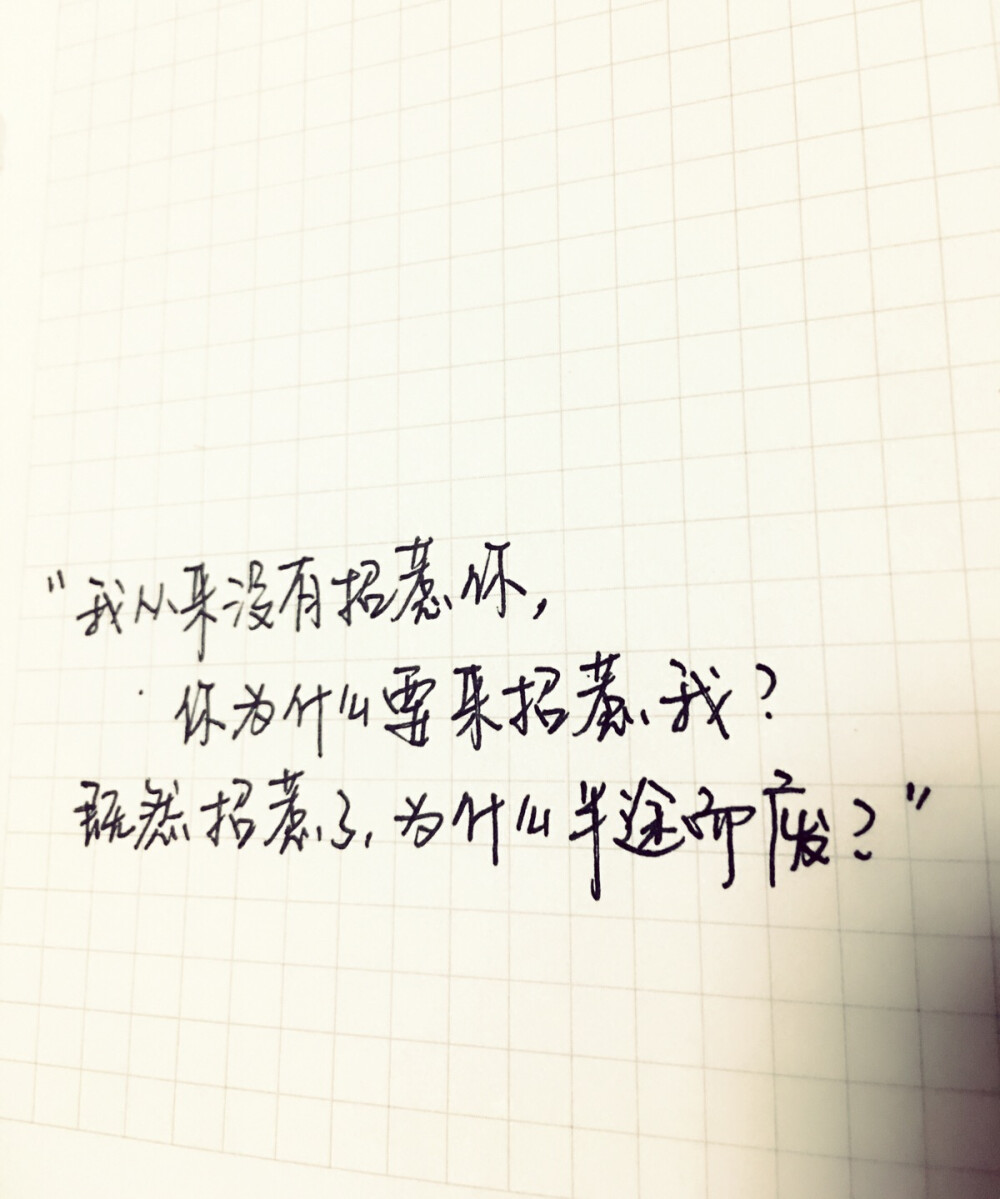 "我从来没有招惹你,
你为什么要来招惹我?
既然招惹了,为什么半途而废?"